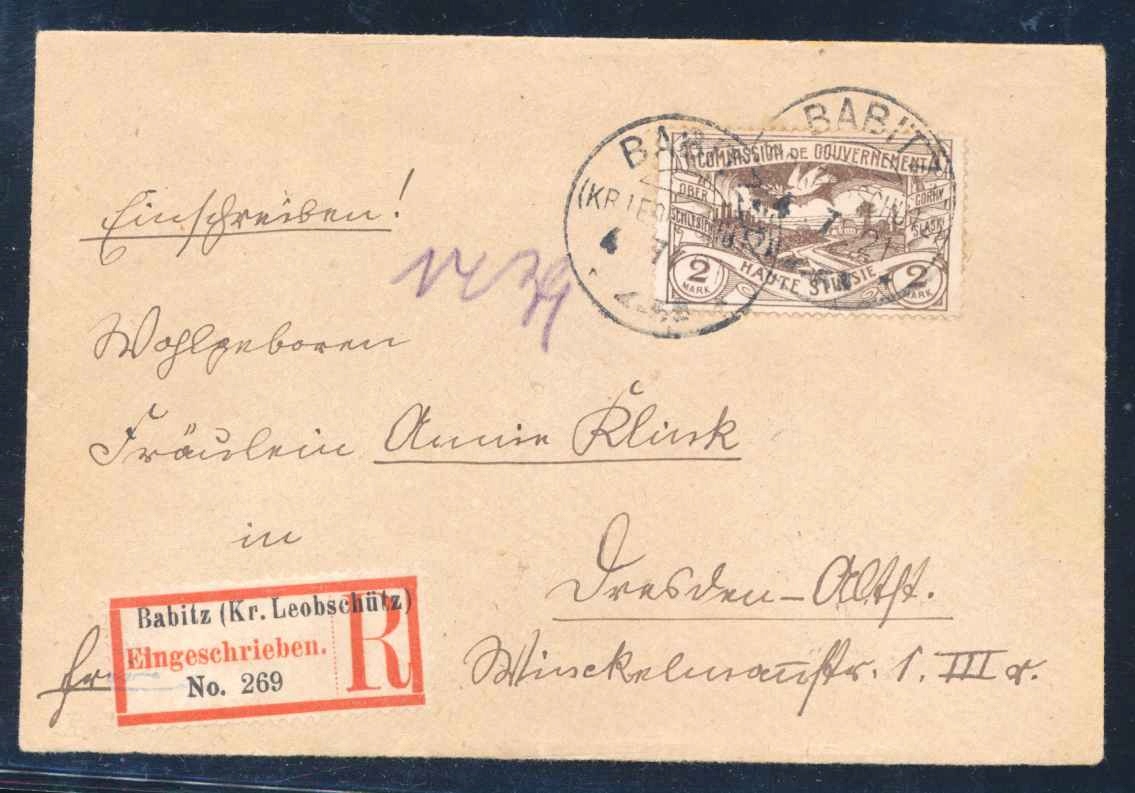 BABITZ
BAB
(KR. LEOB
4 7
4 7 21
COMMISSION DE GOUVERNEMENT
OBER
SCHLESIEN
GÓRNY
ŚLĄSK
HAUTE SILÉSIE
2
MARK
2
MARK
Einschreiben!
Wohlgeboren
Fräulein Annie Klink
in
Dresden-Altst.
Winckelmannstr. 1. III r.
fr
Babitz (Kr. Leobschütz)
Eingeschrieben.
No. 269
R